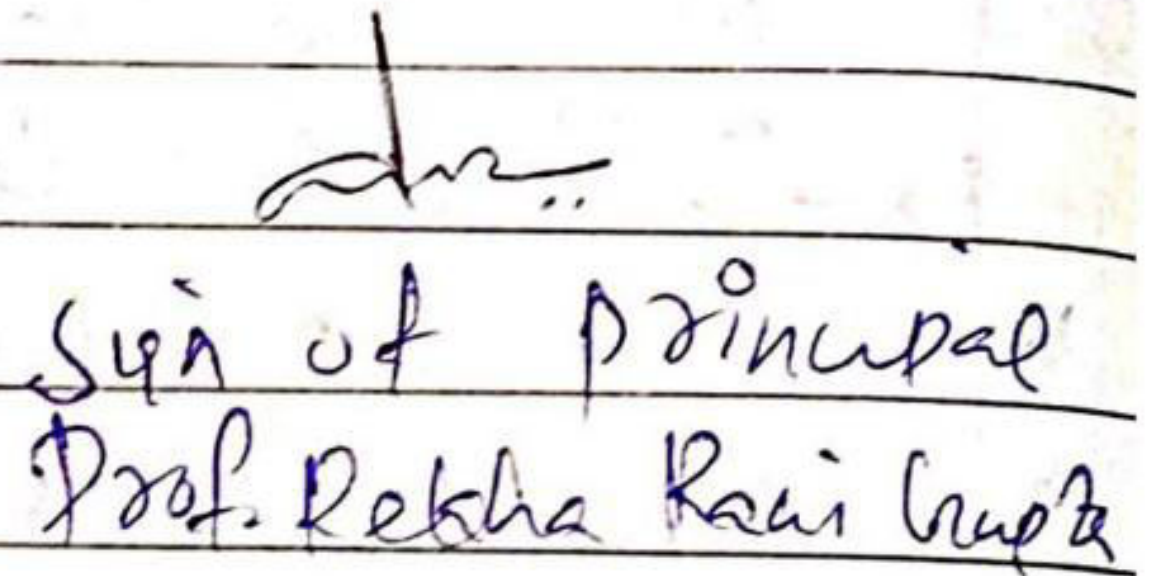 Sign of principal
Prof. Rekha Rani Gupta